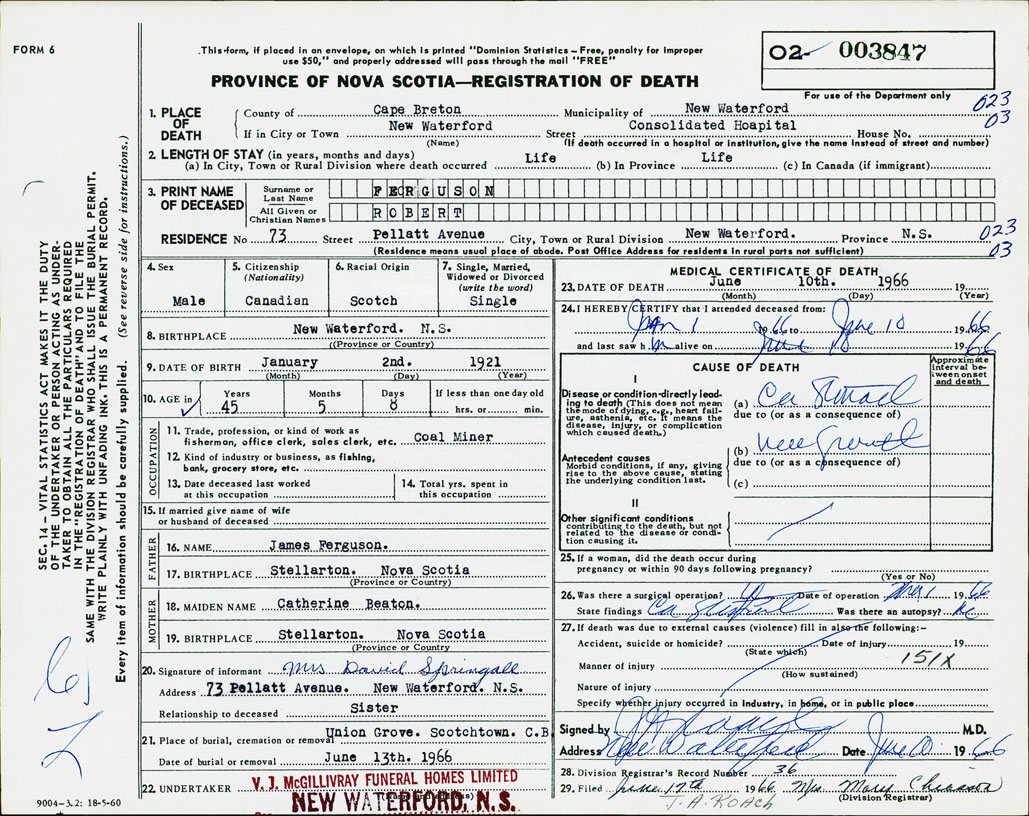 FORM 6
This form, if placed in an envelope, on which is printed "Dominion Statistics – Free, penalty for improper
use $50," and properly addressed will pass through the mail "FREE"
02- 003847
PROVINCE OF NOVA SCOTIA—REGISTRATION OF DEATH
For use of the Department only
023
03
1. PLACE OF DEATH
County of Cape Breton Municipality of New Waterford
If in City or Town New Waterford Street Consolidated Hospital House No.
(Name) (If death occurred in a hospital or institution, give the name instead of street and number)
2. LENGTH OF STAY (in years, months and days)
(a) In City, Town or Rural Division where death occurred Life (b) In Province Life (c) In Canada (if immigrant)
3. PRINT NAME OF DECEASED
Surname or Last Name FERGUSON
All Given or Christian Names ROBERT
RESIDENCE No 73 Street Pellatt Avenue City, Town or Rural Division New Waterford. Province N.S. 023
(Residence means usual place of abode. Post Office Address for residents in rural parts not sufficient) 03
4. Sex Male
5. Citizenship (Nationality) Canadian
6. Racial Origin Scotch
7. Single, Married, Widowed or Divorced (write the word) Single
8. BIRTHPLACE New Waterford. N.S.
((Province or Country)
9. DATE OF BIRTH January 2nd. 1921
(Month) (Day) (Year)
10. AGE in Years 45 Months 5 Days 8 If less than one day old hrs. or min.
OCCUPATION
11. Trade, profession, or kind of work as
fisherman, office clerk, sales clerk, etc. Coal Miner
12. Kind of industry or business, as fishing,
bank, grocery store, etc.
13. Date deceased last worked
at this occupation
14. Total yrs. spent in
this occupation
15. If married give name of wife
or husband of deceased
FATHER
16. NAME James Ferguson.
17. BIRTHPLACE Stellarton. Nova Scotia
(Province or Country)
MOTHER
18. MAIDEN NAME Catherine Beaton.
19. BIRTHPLACE Stellarton. Nova Scotia
(Province or Country)
20. Signature of informant Mrs David Springall
Address 73 Pellatt Avenue. New Waterford. N.S.
Relationship to deceased Sister
21. Place of burial, cremation or removal Union Grove. Scotchtown. C.B.
Date of burial or removal June 13th. 1966
22. UNDERTAKER V. J. McGILLIVRAY FUNERAL HOMES LIMITED
NEW WATERFORD, N.S.
MEDICAL CERTIFICATE OF DEATH
23. DATE OF DEATH June 10th. 1966 19
(Month) (Day) (Year)
24. I HEREBY CERTIFY that I attended deceased from:
1 1966 to June 10 1966
and last saw h im alive on June 10 1966
CAUSE OF DEATH
Approximate interval between onset and death
I
Disease or condition directly leading to death (This does not mean
the mode of dying, e.g., heart failure, asthenia, etc. It means the
disease, injury, or complication
which caused death.)
(a) Ca Stomach
due to (or as a consequence of)
Antecedent causes
Morbid conditions, if any, giving
rise to the above cause, stating
the underlying condition last.
(b) New Growth
due to (or as a consequence of)
(c)
II
Other significant conditions
contributing to the death, but not
related to the disease or condition causing it.
25. If a woman, did the death occur during
pregnancy or within 90 days following pregnancy?
(Yes or No)
26. Was there a surgical operation? Date of operation 1966
State findings Ca Stomach Was there an autopsy? No
27. If death was due to external causes (violence) fill in also the following:–
Accident, suicide or homicide? Date of injury 19
(State which)
Manner of injury 151X
(How sustained)
Nature of injury
Specify whether injury occurred in Industry, in home, or in public place
Signed by M.D.
Address New Waterford Date June 10 1966
28. Division Registrar's Record Number 36
29. Filed June 17th 1966 Mrs Mary Chiasson
(Division Registrar)
J. A. ROACH
SEC. 14 – VITAL STATISTICS ACT MAKES IT THE DUTY
OF THE UNDERTAKER OR PERSON ACTING AS UNDERTAKER
TO OBTAIN ALL THE PARTICULARS REQUIRED
IN THE "REGISTRATION OF DEATH" AND TO FILE THE
SAME WITH THE DIVISION REGISTRAR WHO SHALL ISSUE THE BURIAL PERMIT.
WRITE PLAINLY WITH UNFADING INK. THIS IS A PERMANENT RECORD.
Every item of information should be carefully supplied. (See reverse side for instructions.)
9004-3.2: 18-5-60